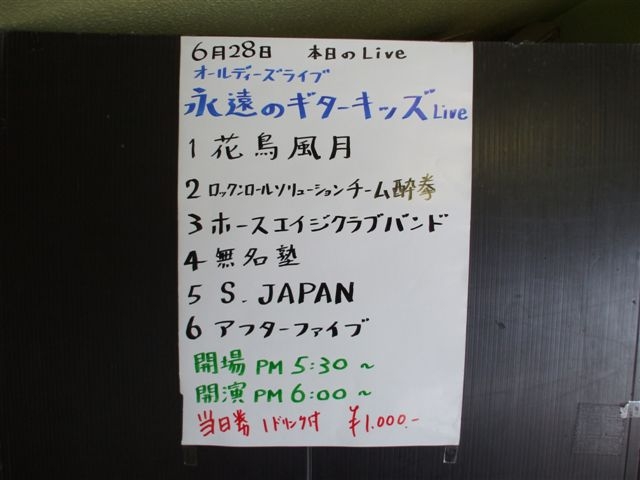 6月28日 本日のLive
オールディーズライブ
永遠のギターキッズLive
1 花鳥風月
2 ロックンロールソリューションチーム酔拳
3 ホースエイジクラブバンド
4 無名塾
5 S. JAPAN
6 アフターファイブ
開場 PM 5:30 ~
開演 PM 6:00 ~
当日券 1ドリンク付 ¥1.000.-